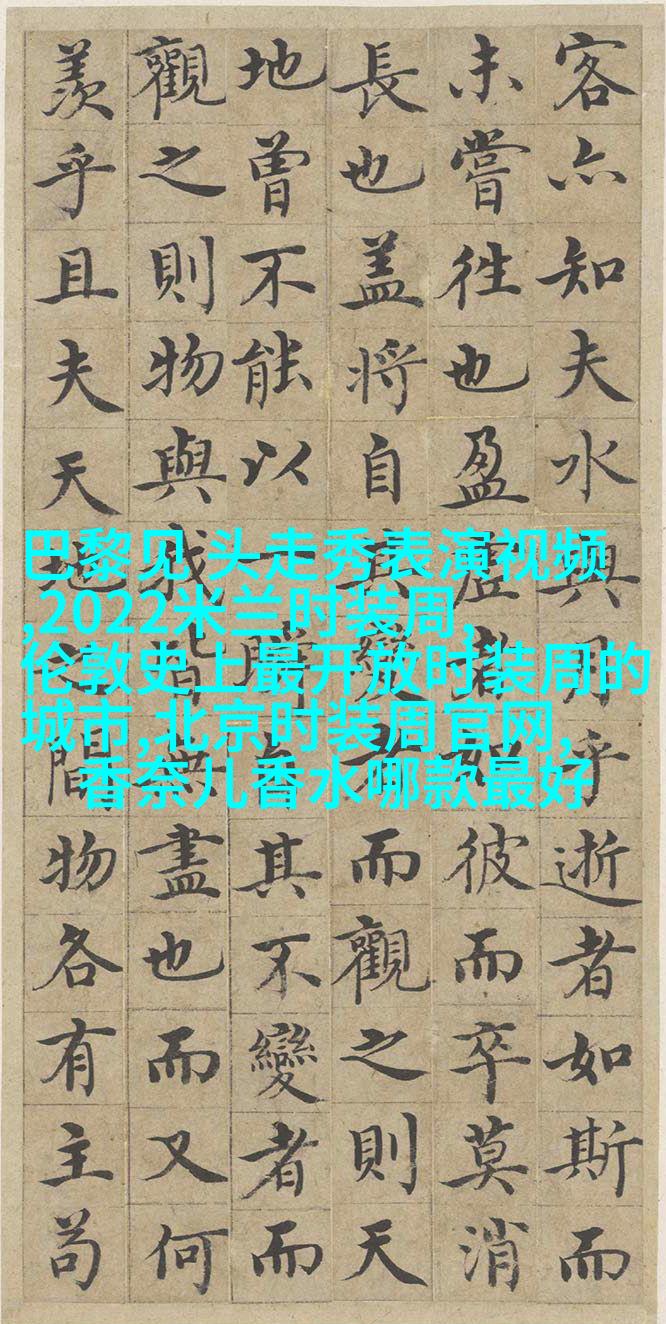 客亦知夫水與月乎逝者如斯而
未嘗往也盈虛者如彼而卒莫消
長也盖將自其變者而觀之則天
地曾不能以一瞬自其不變者而
觀之則物與我皆無盡也而又何
羨乎且夫天地之間物各有主苟
巴黎见 头走秀表演视频
,2022米兰时装周,
伦敦史上最开放时装周的
城市,北京时装周官网,
香奈儿香水哪款最好